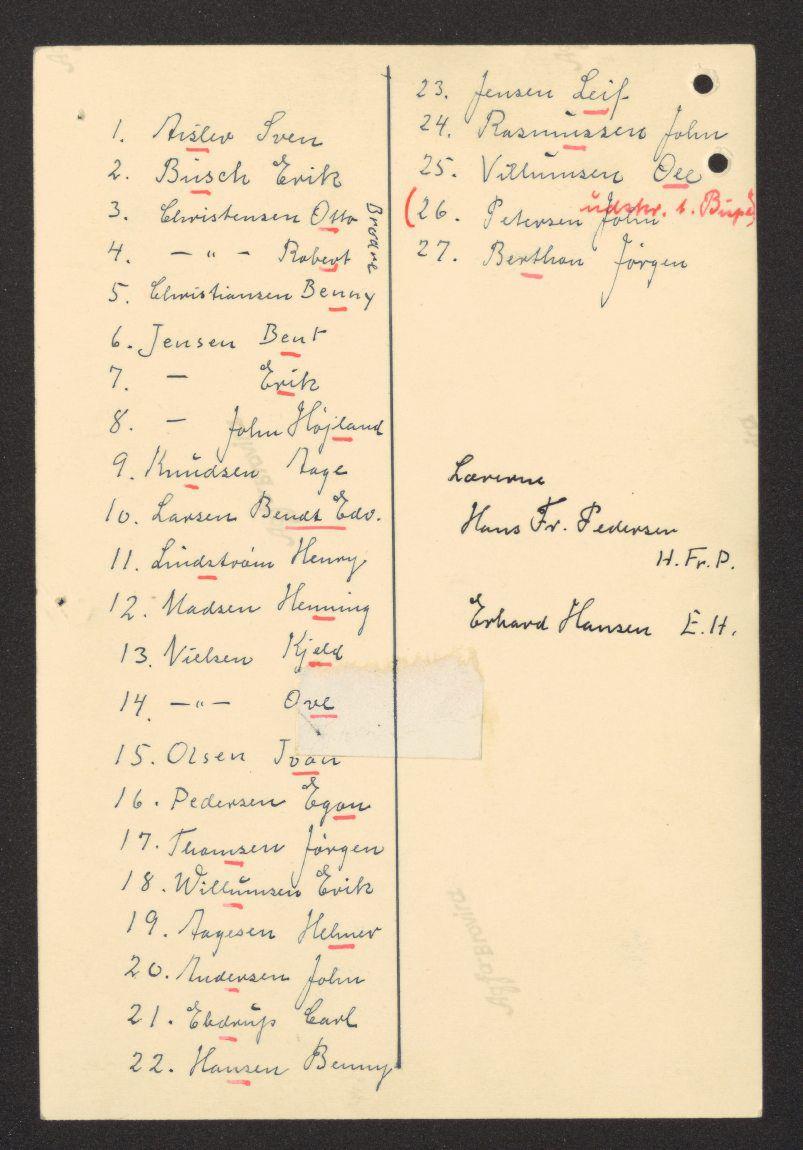 1. Aislev Sven
2. Busch Erik
3. Christensen Otto
4. — " — Robert
Brødre
5. Christiansen Benny
6. Jensen Bent
7. — Erik
8. — John Højland
9. Knudsen Aage
10. Larsen Bendt Edv.
11. Lindstrøm Henry
12. Madsen Henning
13. Nielsen Kjeld
14. — " — Ove
15. Olsen Ivan
16. Pedersen Egon
17. Thomsen Jörgen
18. Willumsen Erik
19. Aagesen Helmer
20. Andersen John
21. Ebdrup Carl
22. Hansen Benny
23. Jensen Leif
24. Rasmussen John
25. Villumsen Ole
(26. Petersen John udskr. t.
27. Berthan Jörgen
Lærerne
Hans Fr. Pedersen
H. Fr. P.
Erhard Hansen E. H.
AgfaBrovira